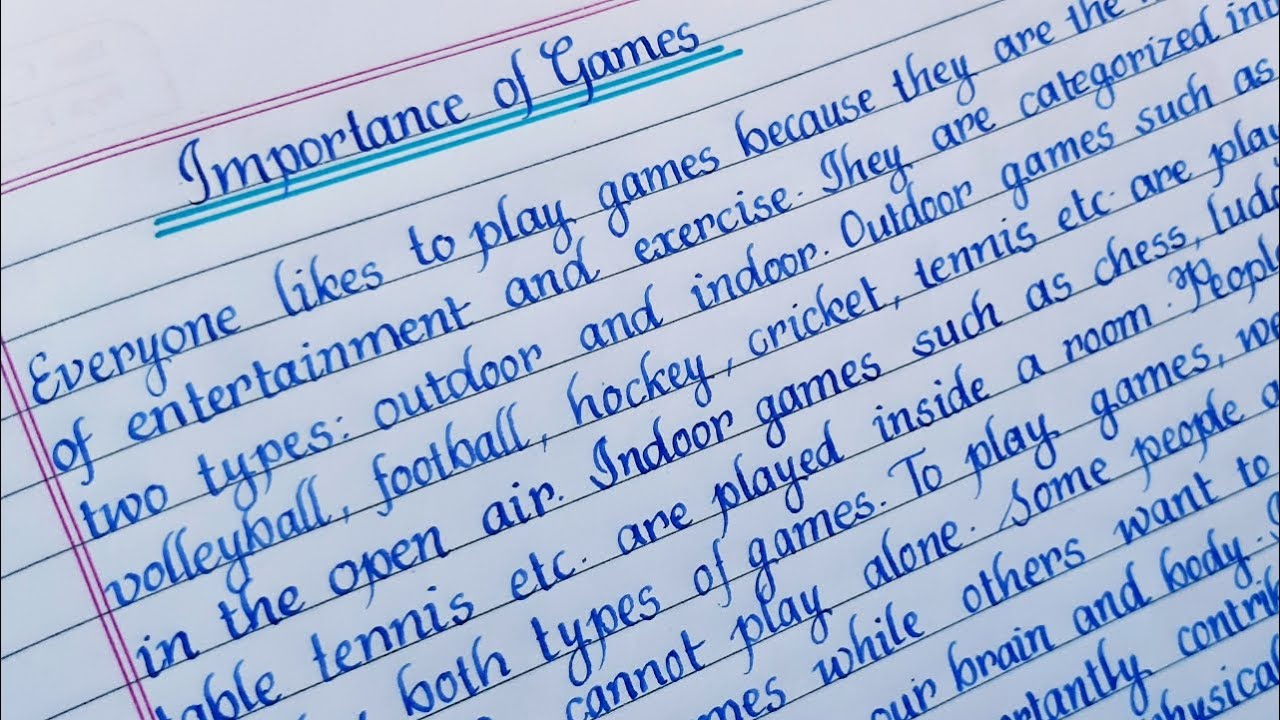 Importance of Games
Everyone likes to play games because they are the
of entertainment and exercise. They are categorized
two types: outdoor and indoor. Outdoor games such as
volleyball, football, hockey, cricket, tennis etc. are
in the open air. Indoor games such as chess,
table tennis etc. are played inside a room.
both types of games. To play games,
cannot play alone. Some people
while others want to
our brain and body.